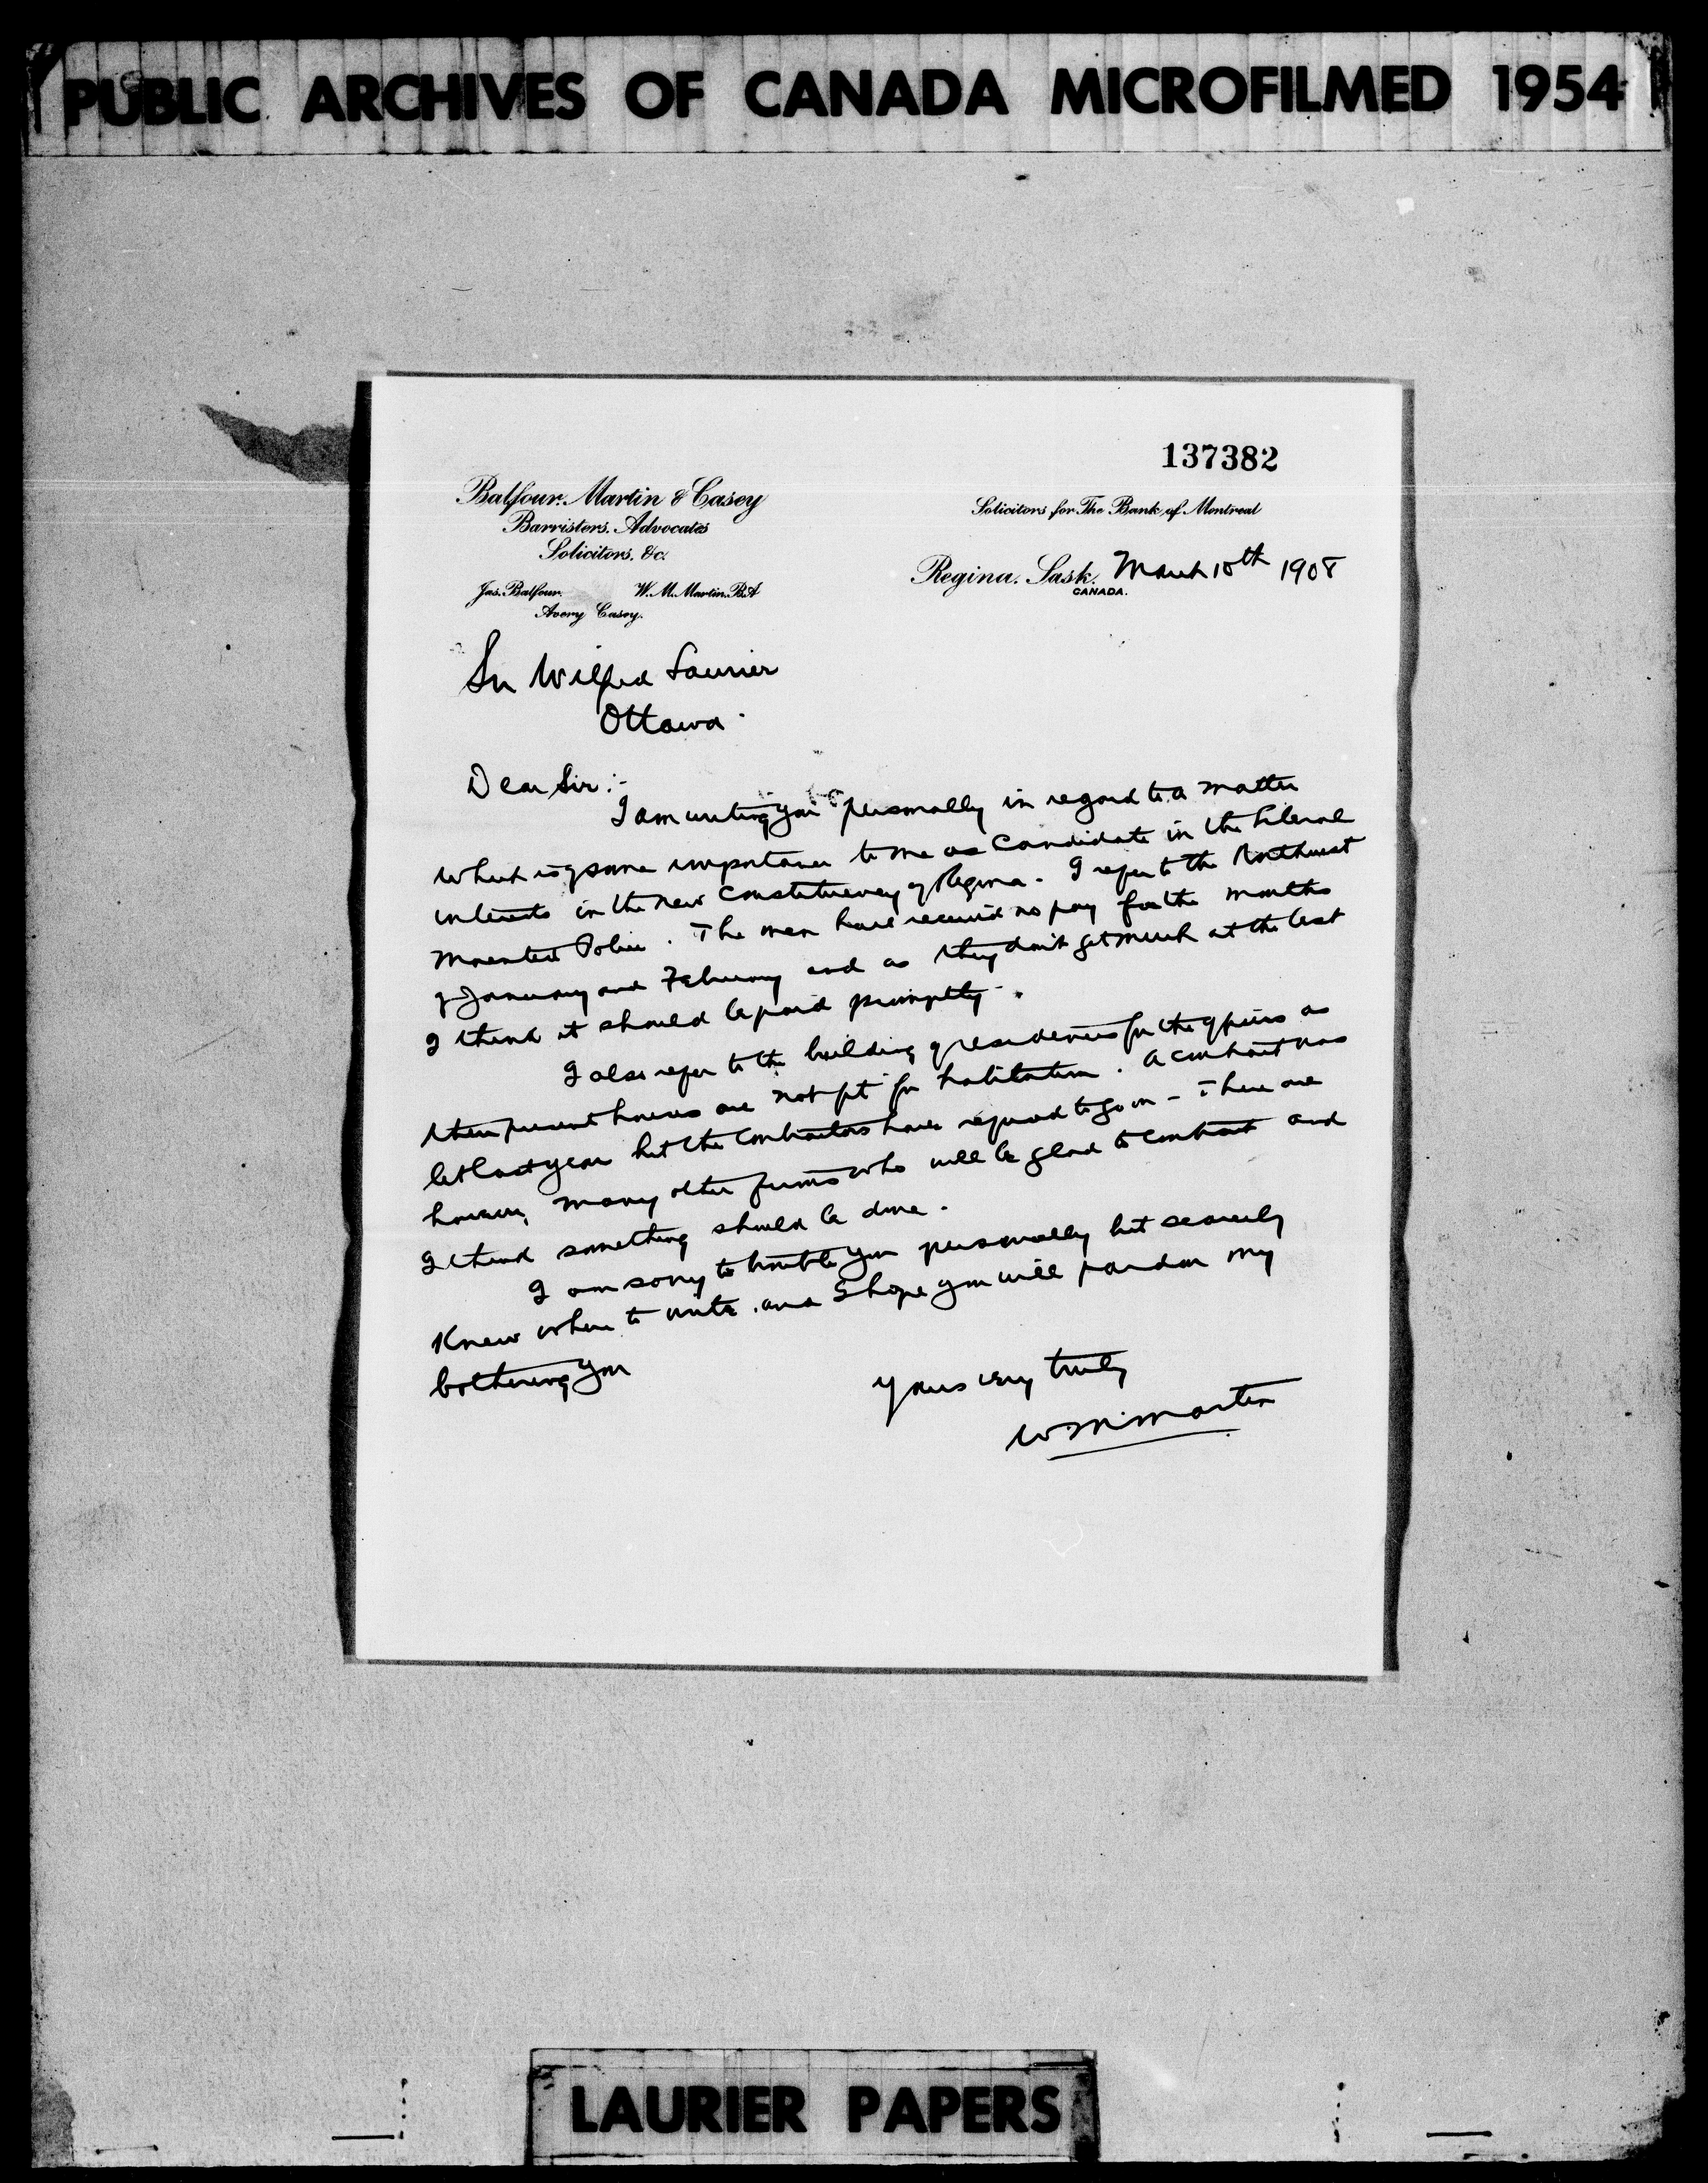 PUBLIC ARCHIVES OF CANADA MICROFILMED 1954
137382
Balfour, Martin & Casey
Barristers, Advocates
Solicitors, &c.
Jas. Balfour. W. M. Martin. B.A
Avery Casey.
Solicitors for The Bank of Montreal
Regina, Sask. March 10th 1908
CANADA.
Sir Wilfrid Laurier
Ottawa.
Dear Sir:-
I am writing you personally in regard to a matter
which is of some importance to me as candidate in the Liberal
interests in the new constituency of Regina. I refer to the Northwest
Mounted Police. The men have received no pay for the months
of January and February and as they don't get much at the best
I think it should be paid promptly.
I also refer to the building of residences for the officers as
their present houses are not fit for habitation. A contract was
let last year but the contractors have refused to go on - There are
however, many other firms who will be glad to contract and
I think something should be done.
I am sorry to trouble you personally but scarcely
knew where to write and I hope you will pardon my
bothering you
Yours very truly
W M Martin
LAURIER PAPERS